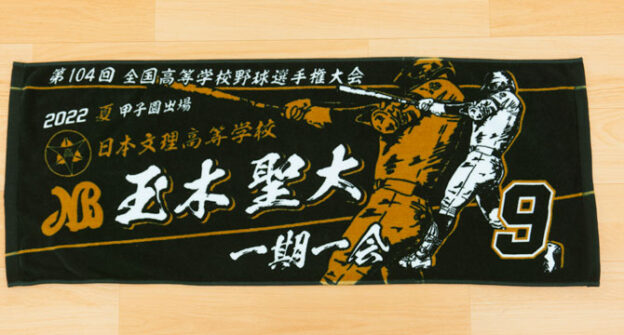 第104回 全国高等学校野球選手権大会
2022 夏 甲子園出場
日本文理高等学校
NB 玉木聖大
一期一会
9